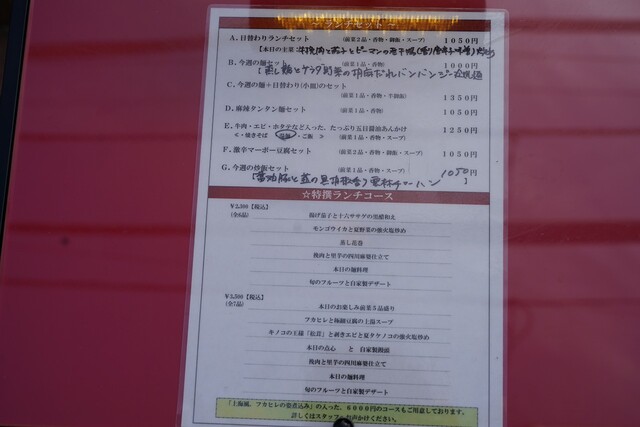 ランチセット
A. 日替わりランチセット (前菜2品・香物・御飯・スープ) 1050円
【本日の主菜
B. 今週の麺セット (前菜1品・香物) 1000円
C. 今週の麺+日替わり(小皿)のセット (前菜1品・香物・半御飯) 1350円
D. 麻辣タンタン麺セット (前菜1品・香物) 1050円
E. 牛肉・エビ・ホタテなど入った、たっぷり五目醤油あんかけ 1250円
<・焼きそば ・ご飯 > (前菜1品・香物・スープ)
F. 激辛マーボー豆腐セット (前菜2品・香物・御飯・スープ) 1050円
G. 今週の炒飯セット (前菜1品・香物・スープ) 1050円
☆特撰ランチコース
¥2,500【税込】
(全6品) 揚げ茄子と十六ササゲの黒酢和え
モンゴウイカと夏野菜の強火塩炒め
蒸し花巻
挽肉と里芋の四川麻婆仕立て
本日の麺料理
旬のフルーツと自家製デザート
¥3,500【税込】
(全7品) 本日のお楽しみ前菜5品盛り
フカヒレと極細豆腐の上湯スープ
キノコの王様「松茸」と剥きエビと夏タケノコの強火塩炒め
本日の点心 と 自家製饅頭
挽肉と里芋の四川麻婆仕立て
本日の麺料理
旬のフルーツと自家製デザート
「上海風、フカヒレの姿煮込み」の入った、6000円のコースもご用意しております。
詳しくはスタッフへお声かけください。